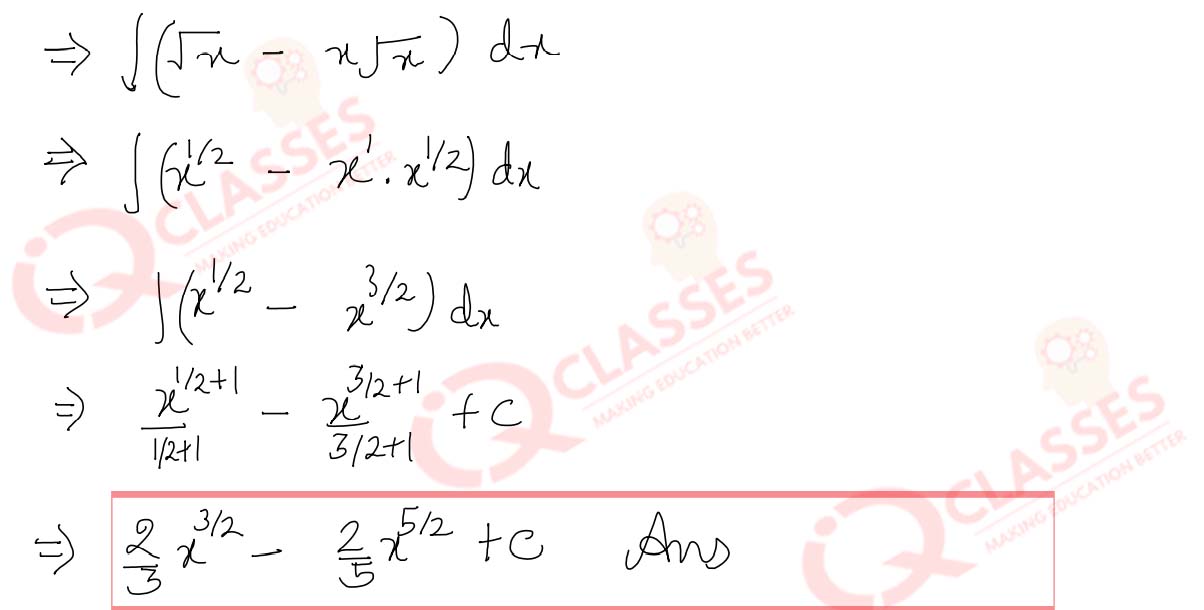 ⇒ ∫(√x - x√x) dx
⇒ ∫(x^1/2 - x^1 . x^1/2) dx
⇒ ∫(x^1/2 - x^3/2) dx
⇒ x^1/2+1 / 1/2+1 - x^3/2+1 / 3/2+1 + C
⇒ 2/3 x^3/2 - 2/5 x^5/2 + C Ans
iQ CLASSES
MAKING EDUCATION BETTER
iQ CLASSES
MAKING EDUCATION BETTER
iQ CLASSES
MAKING EDUCATION BETTER